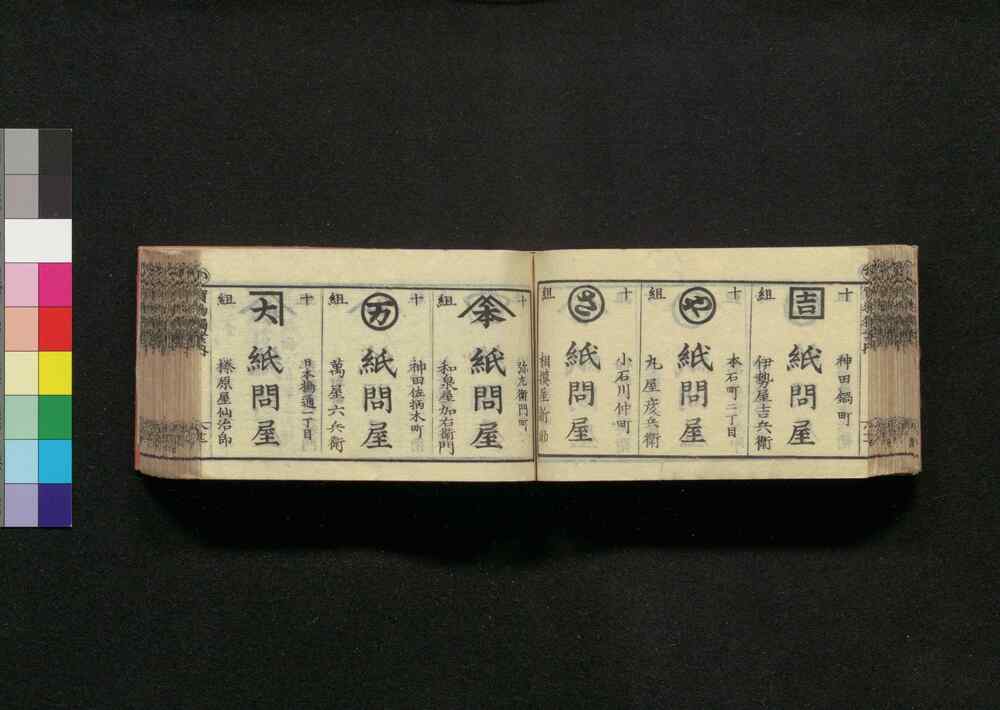 十組
吉
紙問屋
神田鍋町
伊勢屋吉兵衛
十組
や
紙問屋
本石町二丁目
丸屋彦兵衛
十組
さ
紙問屋
小石川仲町
相摸屋新助
十組
本
紙問屋
弥左衛門町
和泉屋加右衛門
十組
万
紙問屋
神田佐柄木町
萬屋六兵衛
十組
大
紙問屋
日本橋通一丁目
榛原屋仙治郎